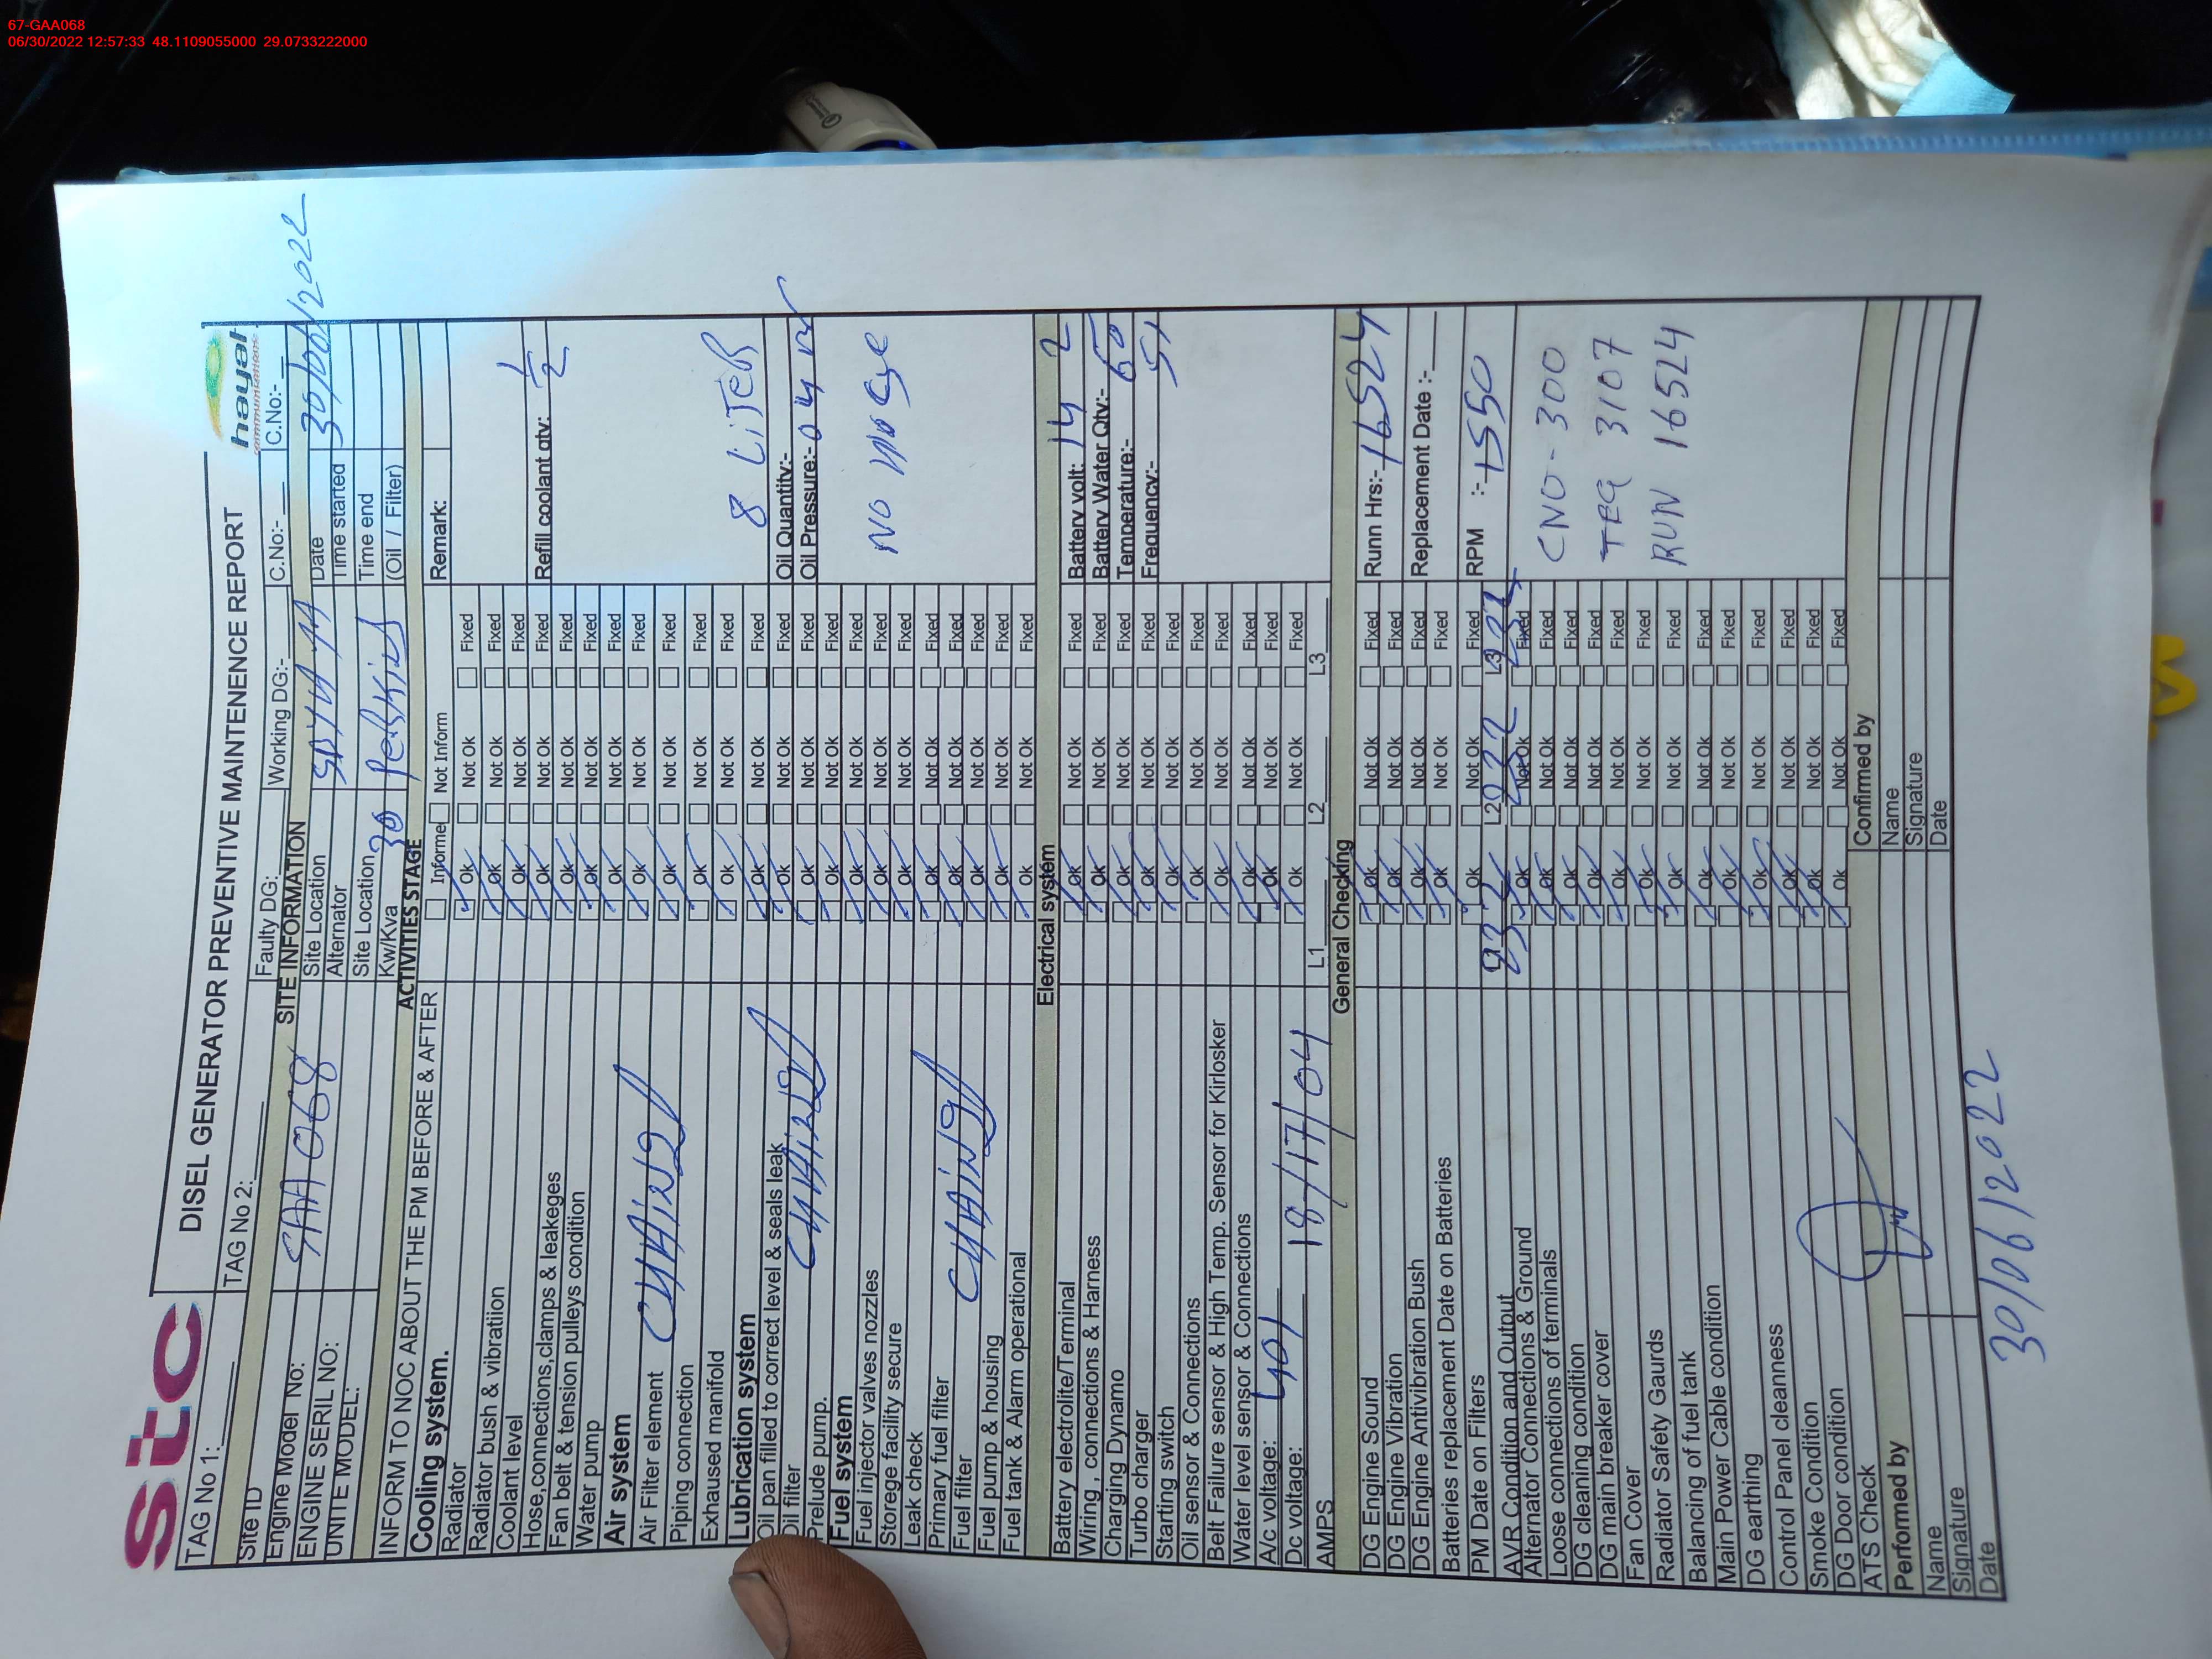 67-GAA068
06/30/2022 12:57:33 48.1109055000 29.0733222000
stc
DISEL GENERATOR PREVENTIVE MAINTENENCE REPORT
hayat
communications
TAG No 1:____ TAG No 2:____ Faulty DG:____ Working DG:-____ C.No:- __ C.No:- __
SITE INFORMATION
Site ID
Engine Model No: GAA 068 Site Location Date 30/06/2022
ENGINE SERIL NO: Alternator Time started
UNITE MODEL: Site Location Time end
Kw/Kva 30 Perkins (Oil / Filter)
ACTIVITIES STAGE
INFORM TO NOC ABOUT THE PM BEFORE & AFTER Informe Not Inform Remark:
Cooling system.
Radiator Ok Not Ok Fixed
Radiator bush & vibration Ok Not Ok Fixed
Coolant level Ok Not Ok Fixed
Hose,connections,clamps & leakeges Ok Not Ok Fixed Refill coolant qty: 1/2
Fan belt & tension pulleys condition Ok Not Ok Fixed
Water pump Ok Not Ok Fixed
Air system Ok Not Ok Fixed
Air Filter element Ok Not Ok Fixed
Piping connection Ok Not Ok Fixed
Exhaused manifold Ok Not Ok Fixed
Lubrication system Ok Not Ok Fixed
Oil pan filled to correct level & seals leak Ok Not Ok Fixed 8 LiTeR
Oil filter Ok Not Ok Fixed Oil Quantity:-
Prelude pump. Ok Not Ok Fixed Oil Pressure:- 04
Fuel system Ok Not Ok Fixed
Fuel injector valves nozzles Ok Not Ok Fixed
Storege facility secure Ok Not Ok Fixed
Leak check Ok Not Ok Fixed
Primary fuel filter Ok Not Ok Fixed
Fuel filter Ok Not Ok Fixed
Fuel pump & housing Ok Not Ok Fixed
Fuel tank & Alarm operational Ok Not Ok Fixed
Electrical system
Battery electrolite/Terminal Ok Not Ok Fixed Battary volt: 14 2
Wiring , connections & Harness Ok Not Ok Fixed Battary Water Qty:-
Charging Dynamo Ok Not Ok Fixed Temperature:- 60
Turbo charger Ok Not Ok Fixed Frequency:- 51
Starting switch Ok Not Ok Fixed
Oil sensor & Connections Ok Not Ok Fixed
Belt Failure sensor & High Temp. Sensor for Kirlosker Ok Not Ok Fixed
Water level sensor & Connections Ok Not Ok Fixed
A/c voltage: 401 Ok Not Ok Fixed
Dc voltage: Ok Not Ok Fixed
AMPS 18/17/04 L1____ L2____ L3____
General Checking
DG Engine Sound Ok Not Ok Fixed Runn Hrs:- 16524
DG Engine Vibration Ok Not Ok Fixed
DG Engine Antivibration Bush Ok Not Ok Fixed Replacement Date :-____
Batteries replacement Date on Batteries Ok Not Ok Fixed
PM Date on Filters Ok Not Ok Fixed RPM :- 1550
AVR Condition and Output 232 L2 232 L3 232
Alternator Connections & Ground Ok Not Ok Fixed
Loose connections of terminals Ok Not Ok Fixed CNO-300
DG cleaning condition Ok Not Ok Fixed
DG main breaker cover Ok Not Ok Fixed TEG 3107
Fan Cover Ok Not Ok Fixed
Radiator Safety Gaurds Ok Not Ok Fixed RUN 16524
Balancing of fuel tank Ok Not Ok Fixed
Main Power Cable condition Ok Not Ok Fixed
DG earthing Ok Not Ok Fixed
Control Panel cleanness Ok Not Ok Fixed
Smoke Condition Ok Not Ok Fixed
DG Door condition Ok Not Ok Fixed
ATS Check
Performed by Confirmed by
Name Name
Signature Signature
Date Date
30/06/2022